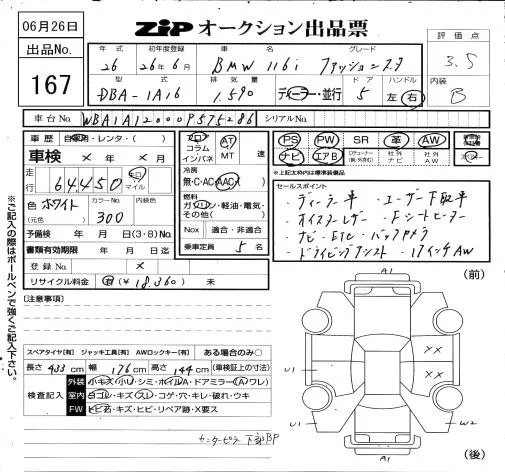 06月26日
ZiP オークション出品票
出品No.
167
評価点
3.5
内装
B
年式 初年度登録 車名 グレード
26 26年6月 BMW 116i ファッションスタ
型式 排気量 ドア ハンドル
DBA-1A16 1,590 ディーラー・並行 5 左 右
車台No. WBA1A12000P575286 シリアルNo.
車歴 自家用・レンタ・( )
車検 × 年 × 月
走行 64,450 キロ マイル
色 ホワイト カラーNo. 300 内装色
(元色)
予備検 年 月 日(3・8)No.
書類有効期限 年 月 日迄
登録No. ×
リサイクル料金 有(¥18,360) 未
フロア コラム インパネ
AT MT 速
冷房
無・C・AC・AAC
燃料
ガソリン・軽油・電気・その他( )
Nox 適合・非適合
乗車定員 5 名
PS PW SR 革 AW
ナビ エアB 社外ナビ 社外AW
※上記太枠内は標準装備品
セールスポイント
・ディーラー車 ・ユーザー下取車
・オイスターレザー ・Fシートヒーター
・ナビ ・ETC ・バックカメラ
・ドライビングアシスト ・17インチAW
※ご記入の際はボールペンで強くご記入下さい。
[注意事項]
スペアタイヤ[有] ジャッキ工具[有] AWロックキー[有] ある場合のみ○
長さ 433cm 幅 176cm 高さ 144cm (車検証上の寸法)
検査記入
外装 小キズ・小U・シミ・ホイルA・ドアミラー(A・ワレ)
室内 白コレ・キズ・スレ・コゲ・穴・キレ・破れ・ウキ
FW トビ石・キズ・ヒビ・リペア跡・X要ス
センターピラー下部BP
(前)
A1
××
××
U1
U1
W2
A1
(後)